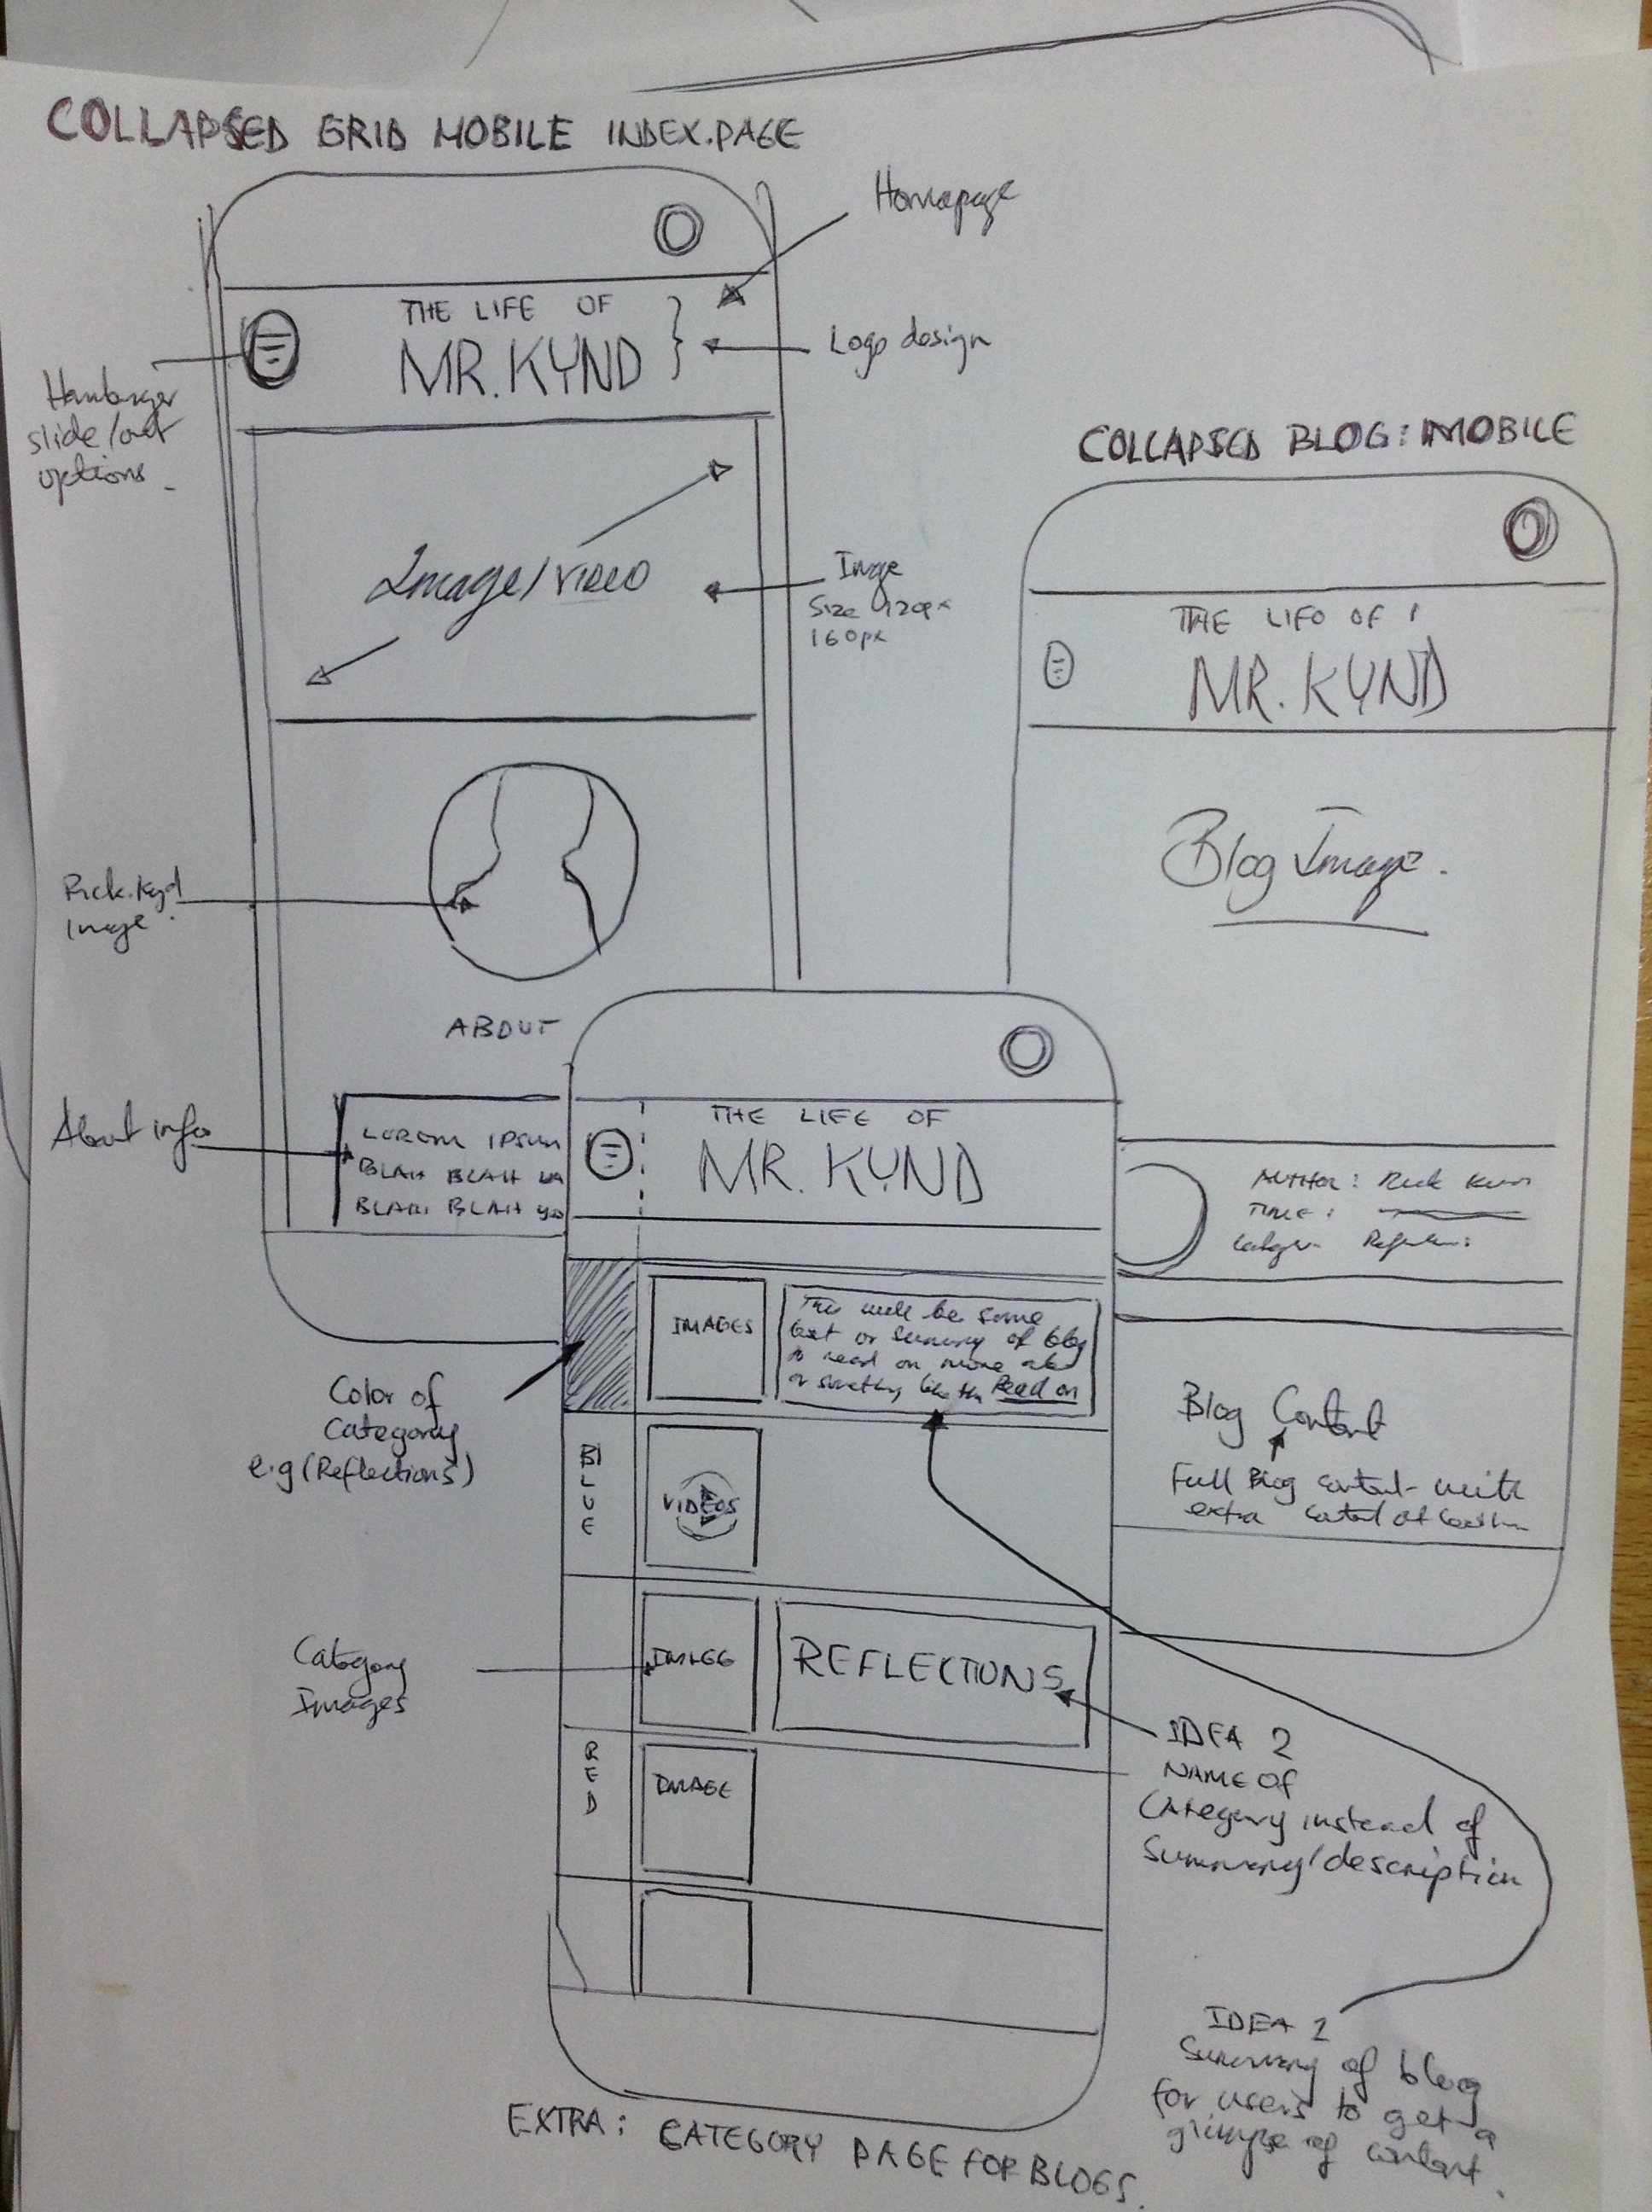 COLLAPSED GRID MOBILE INDEX.PAGE
Homepage
THE LIFE OF
MR. KYND
Logo design
Hamburger
slide/out
options
Image/VIDEO
Image
Size 120px
160px
Rick.Kynd
Image
ABOUT
About info
LOREM IPSUM
BLAH BLAH
BLAH BLAH
COLLAPSED BLOG: MOBILE
THE LIFO OF
MR. KYND
Blog Image.
AUTHOR: Rick
TIME:
Blog Content
Full Blog content with
extra content at
THE LIFE OF
MR. KYND
IMAGES
This will be some
text or summary of blog
to read on more
or something like this Read on
Color of
Category
e.g (Reflections)
BLUE
VIDEOS
Category
Images
IMAGE
REFLECTIONS
RED
IMAGE
IDEA 2
NAME OF
Category instead of
Summary/description
IDEA 1
Summary of blog
for users to get a
glimpse of content.
EXTRA: CATEGORY PAGE FOR BLOGS.